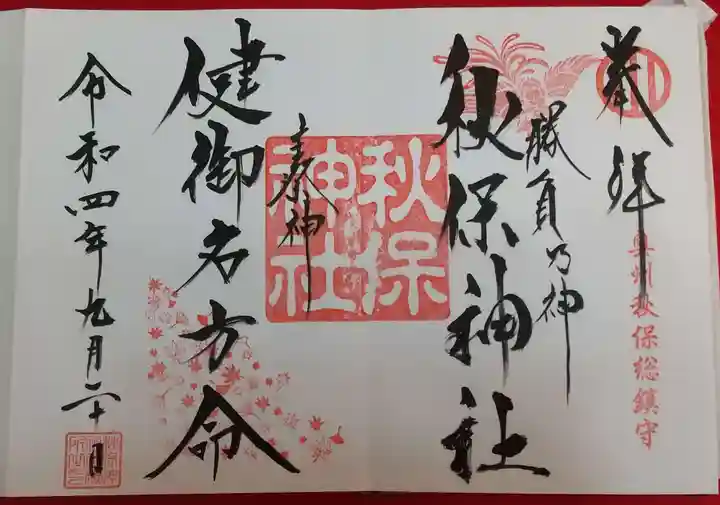 奉拝
奥州秋保総鎮守
勝負乃神
秋保神社
秋保
神社
主祭神
健御名方命
令和四年九月二十日